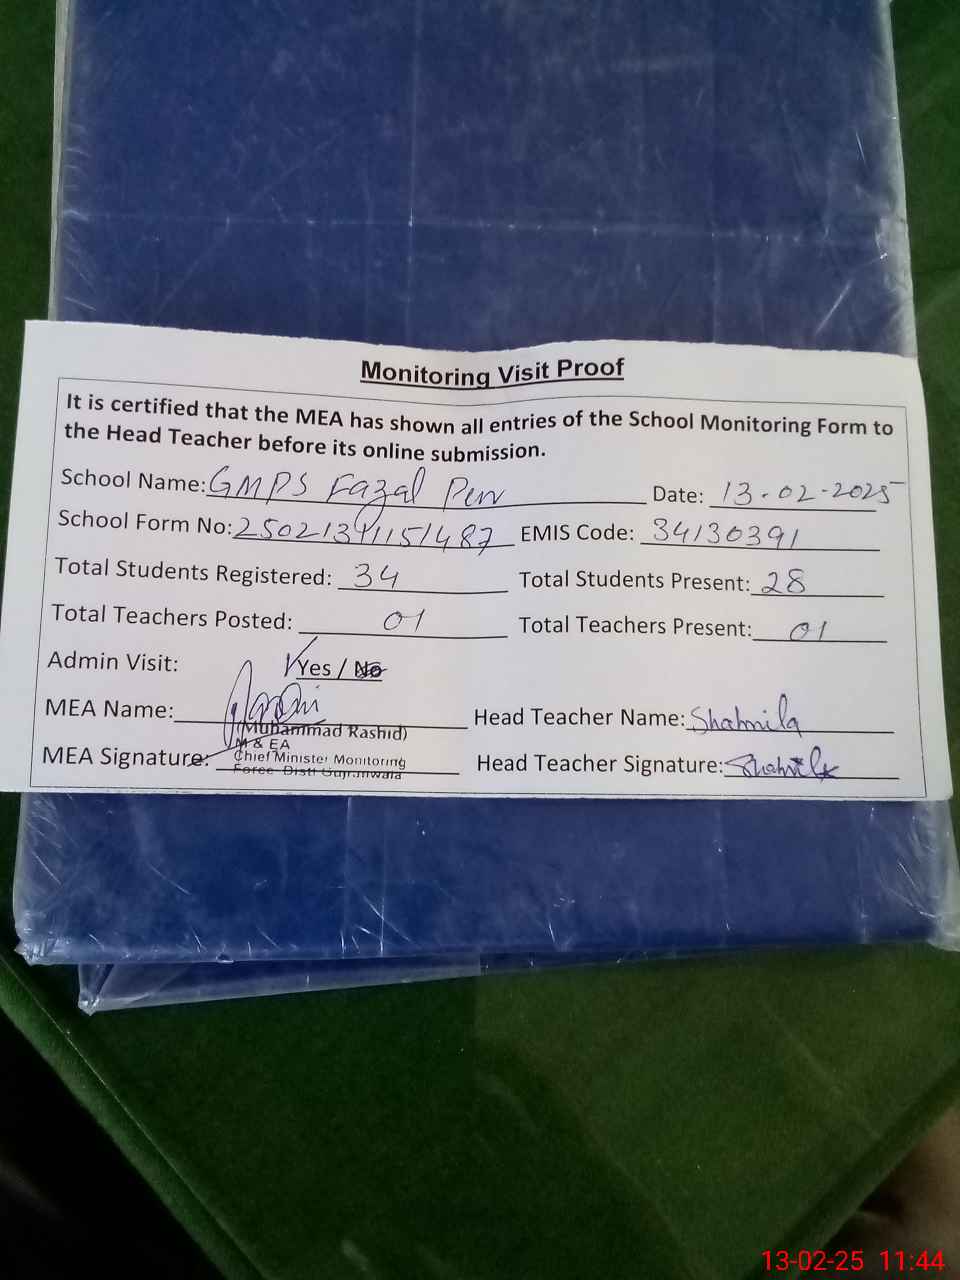 Monitoring Visit Proof
It is certified that the MEA has shown all entries of the School Monitoring Form to
the Head Teacher before its online submission.
School Name: GMPS Fazal Pur Date: 13-02-2025
School Form No: EMIS Code: 34130391
Total Students Registered: 34 Total Students Present: 28
Total Teachers Posted: 01 Total Teachers Present: 01
Admin Visit: Yes / No
MEA Name: Head Teacher Name: Shahmila
(Muhammad Rashid)
M & EA
MEA Signature: Chief Minister Monitoring Head Teacher Signature: Shahmila
Force Distt Gujranwala
13-02-25 11:44